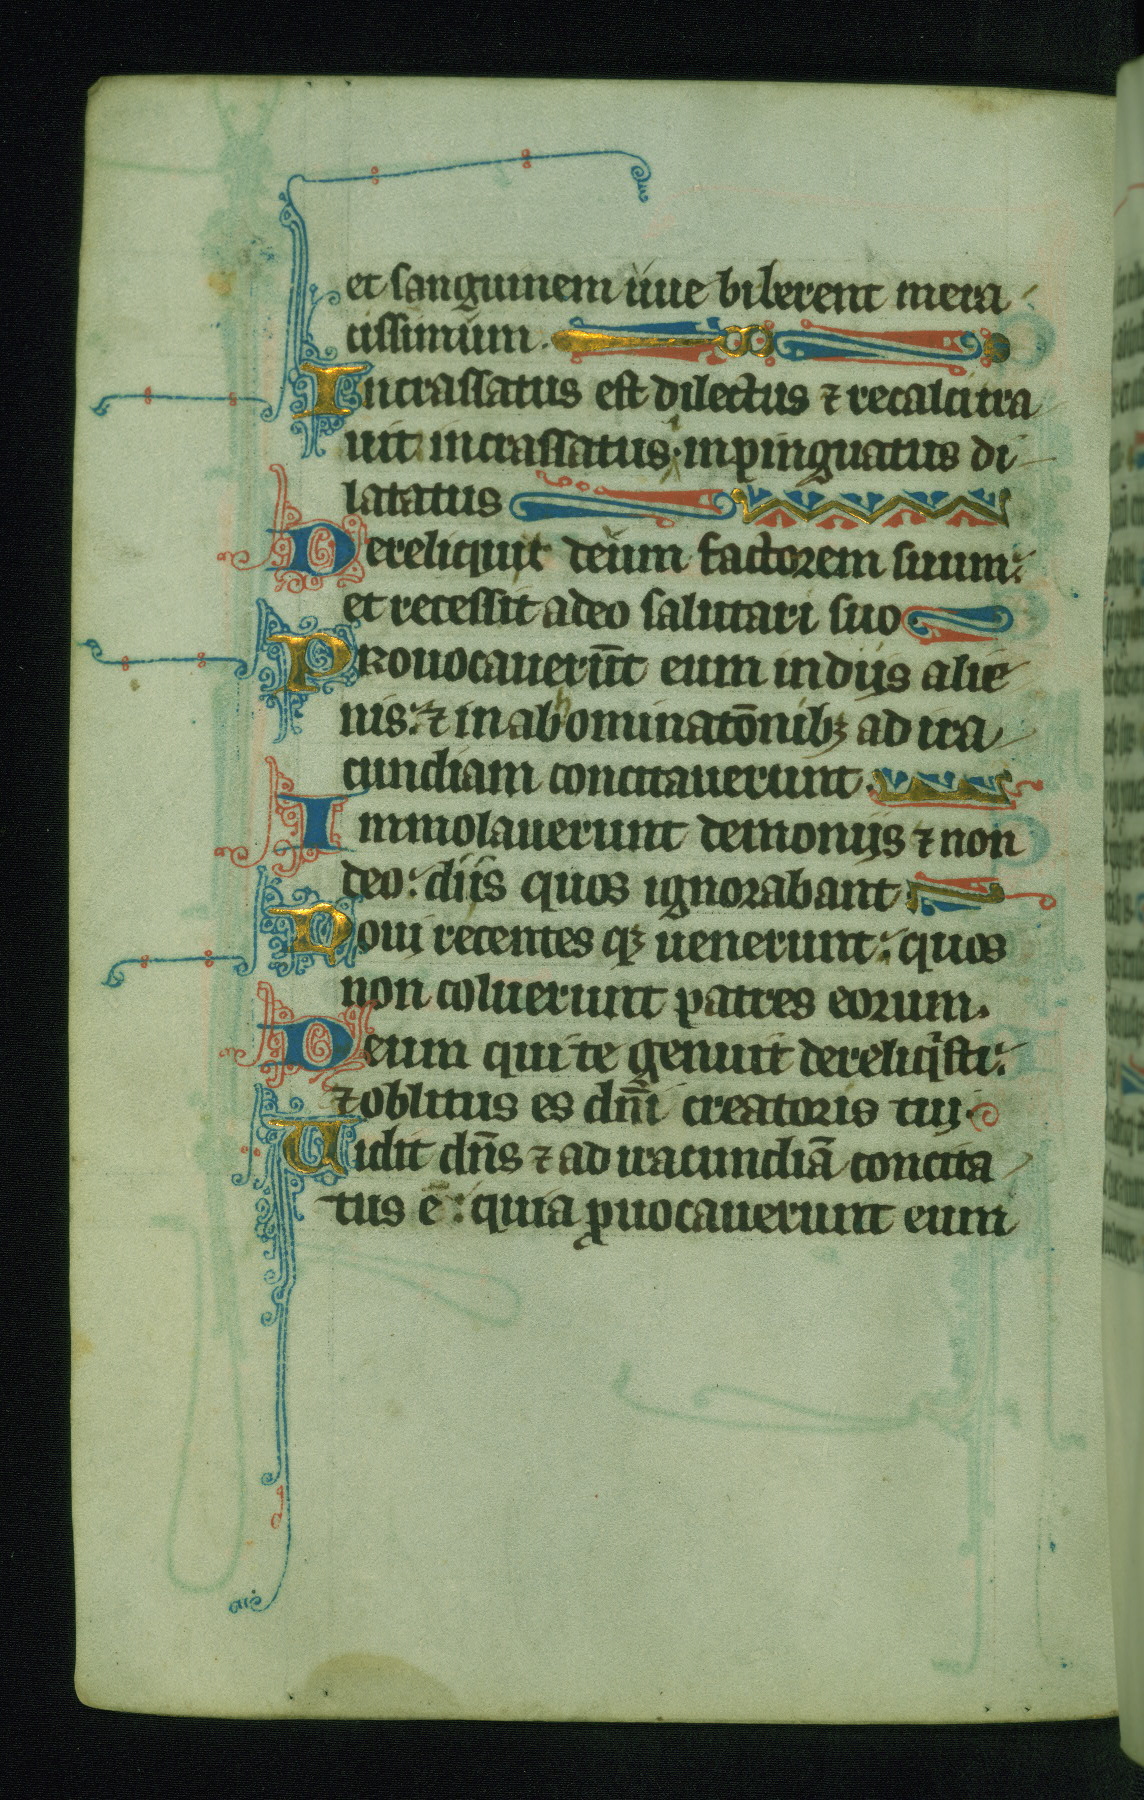 et sanguinem uue biberent mera
cissimum.
Incrassatus est dilectus ⁊ recalcitra
uit incrassatus. inpinguatus di
latatus
Dereliquit deum factorem suum:
et recessit a deo salutari suo
Prouocauerūt eum in dijs alie
nis: ⁊ in abhominatōnibꝫ ad ira
cundiam concitauerunt.
Immolauerunt demonijs ⁊ non
deo: diis quos ignorabant
Noui recentes qꝫ uenerunt: quos
non coluerunt patres eorum.
Deum qui te genuit dereliqͥsti:
⁊ oblitus es dn̄i creatoris tuj.
Uidit dn̄s ⁊ ad iracundiā concita
tus ē: quia ꝓuocauerunt eum